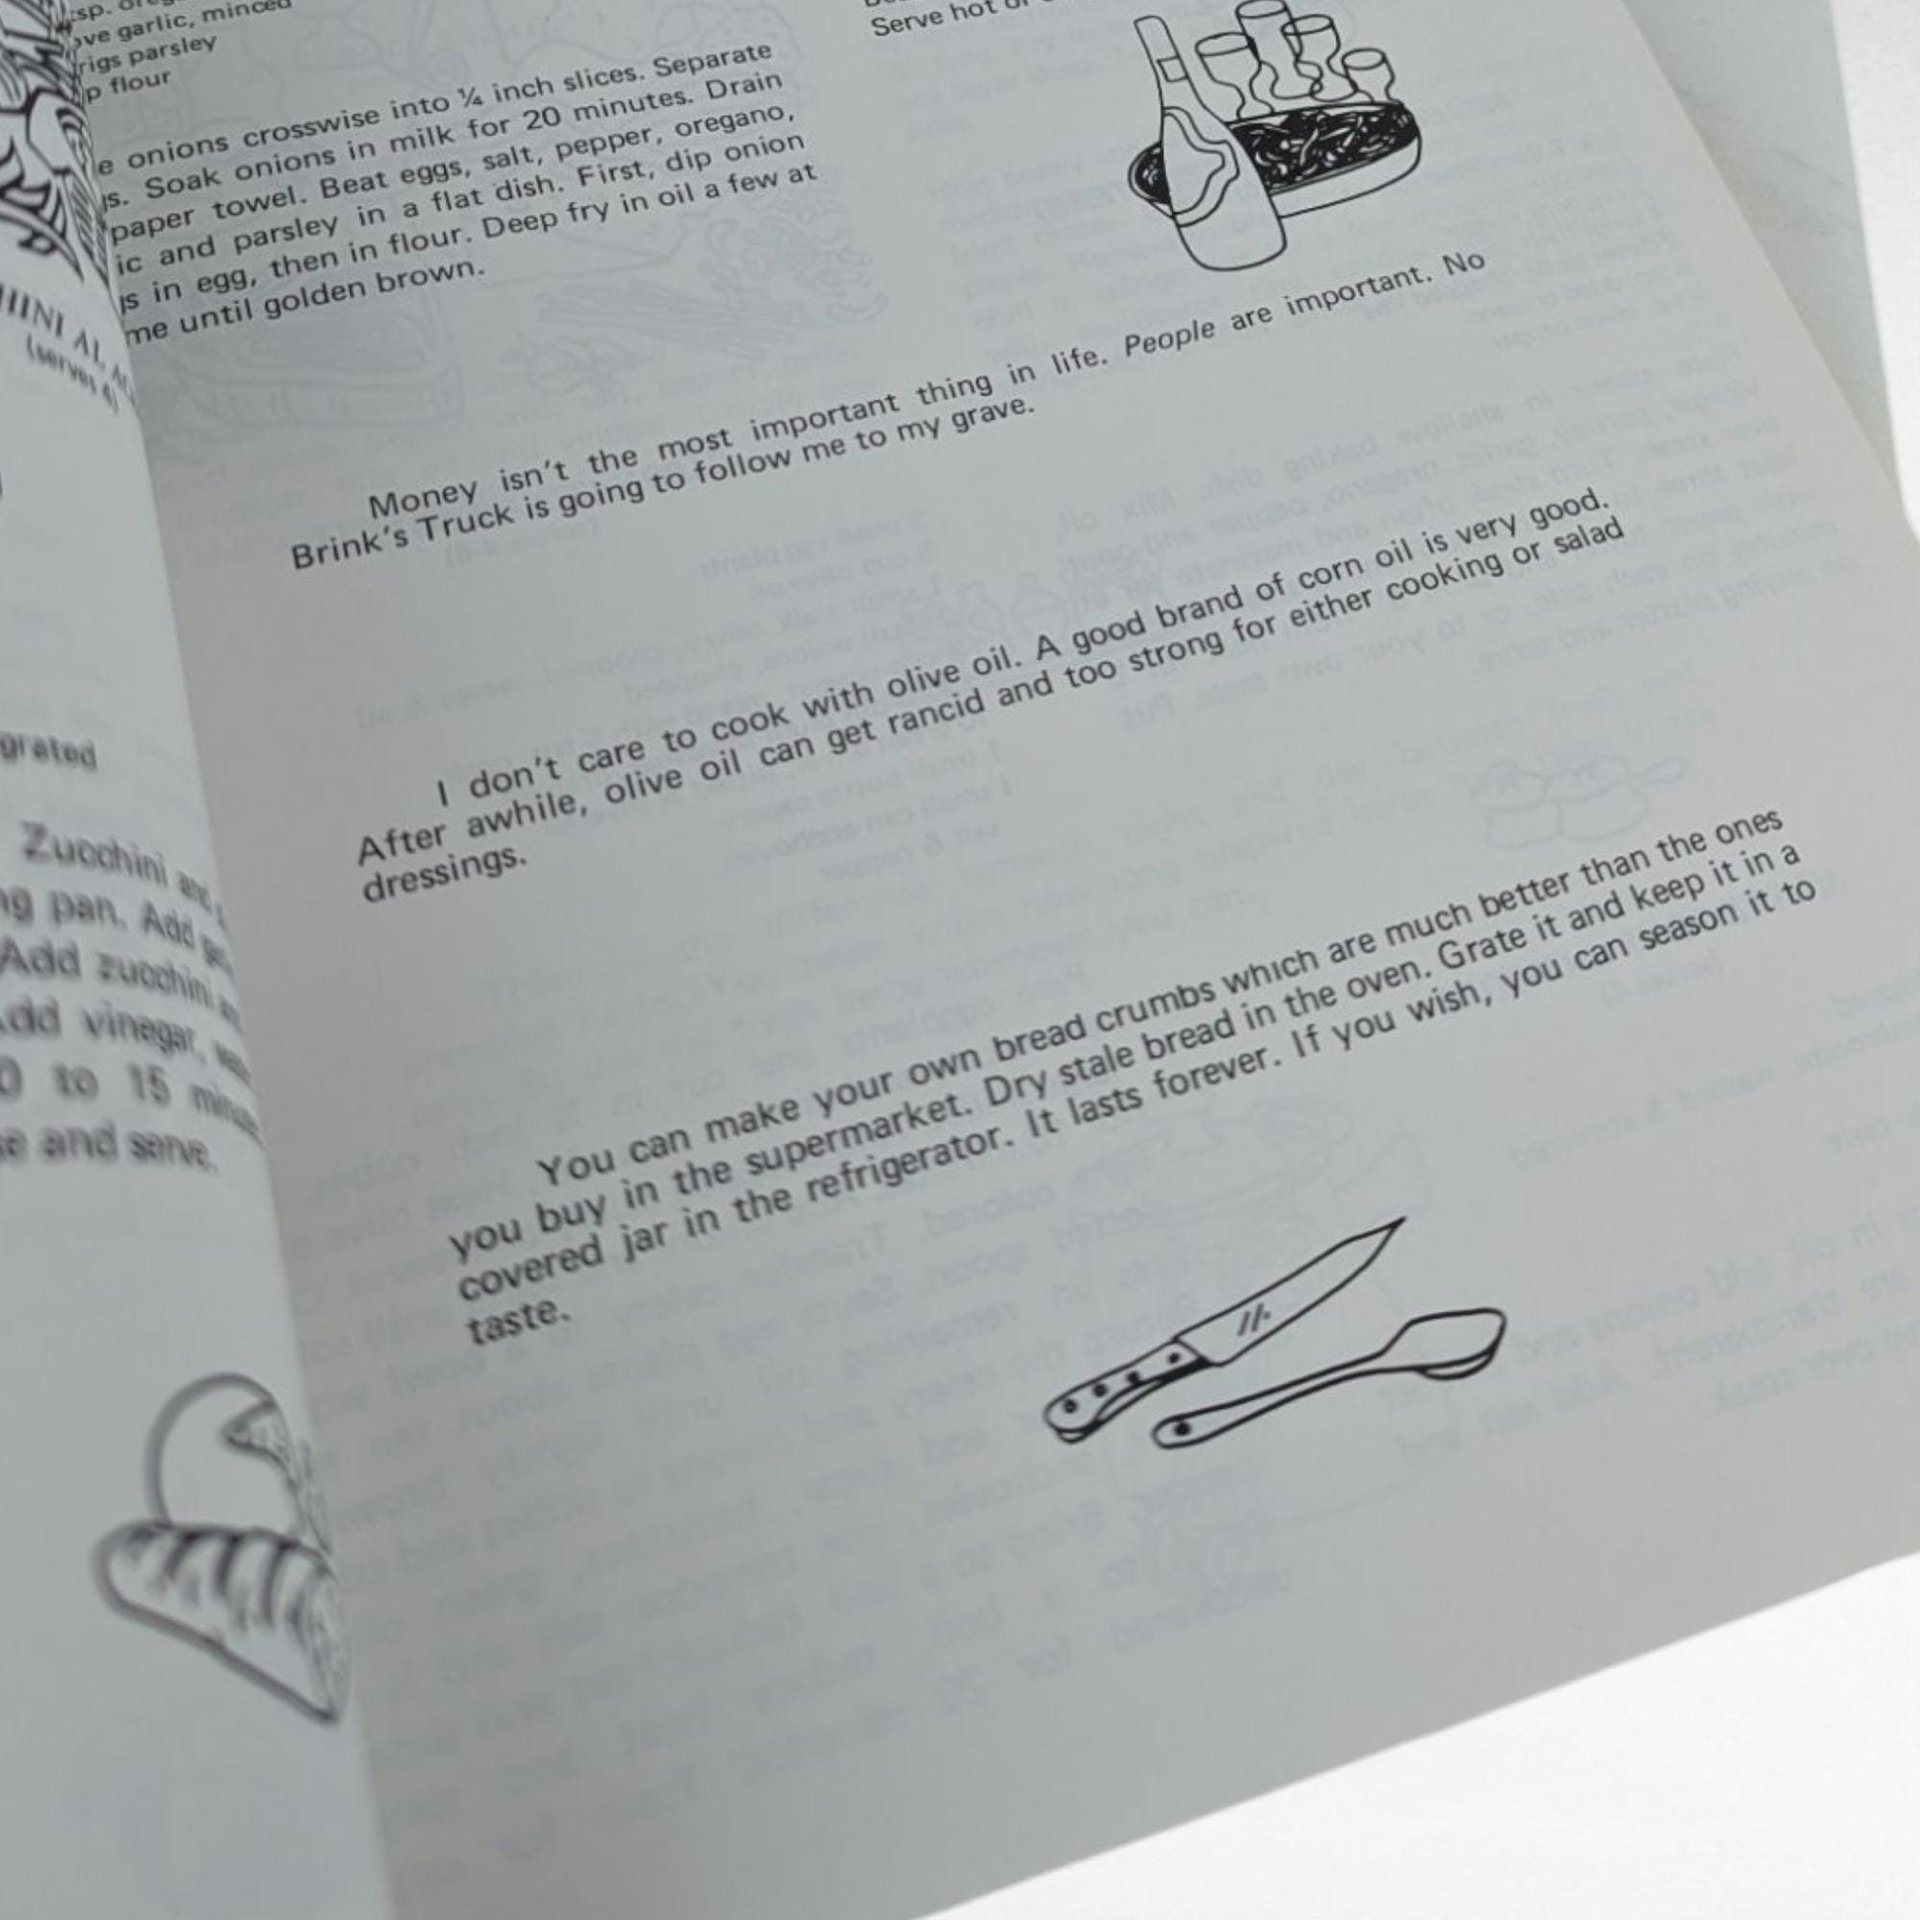 garlic, minced
parsley
flour
onions crosswise into ¼ inch slices. Separate
Soak onions in milk for 20 minutes. Drain
paper towel. Beat eggs, salt, pepper, oregano,
and parsley in a flat dish. First, dip onion
in egg, then in flour. Deep fry in oil a few at
until golden brown.
Serve hot
Money isn't the most important thing in life. People are important. No
Brink's Truck is going to follow me to my grave.
I don't care to cook with olive oil. A good brand of corn oil is very good.
After awhile, olive oil can get rancid and too strong for either cooking or salad
dressings.
You can make your own bread crumbs which are much better than the ones
you buy in the supermarket. Dry stale bread in the oven. Grate it and keep it in a
covered jar in the refrigerator. It lasts forever. If you wish, you can season it to
taste.
grated
Zucchini and
pan. Add
Add zucchini
vinegar,
to 15
and serve.